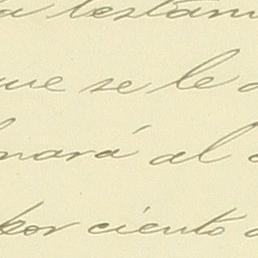 la testam
que se le d
nará al
por ciento d